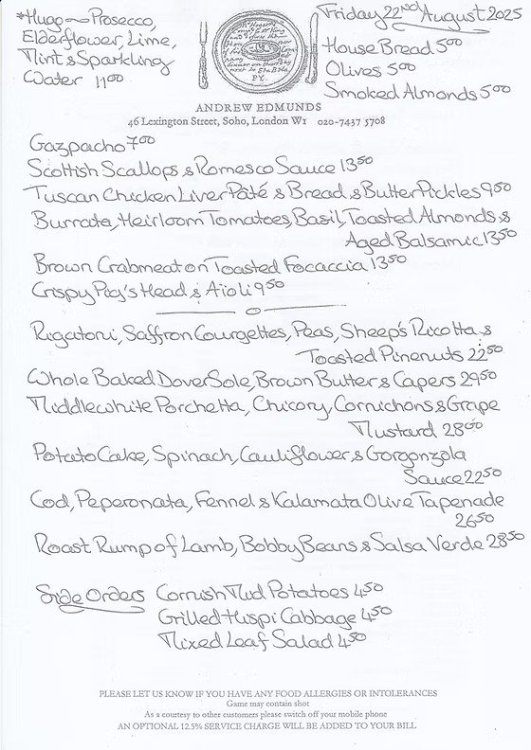 *Hugo ~ Prosecco,
Elderflower, Lime,
Mint & Sparkling
Water 11⁰⁰
Friday 22ⁿᵈ August 2025
House Bread 5⁰⁰
Olives 5⁰⁰
Smoked Almonds 5⁰⁰
ANDREW EDMUNDS
46 Lexington Street, Soho, London W1 020-7437 5708
Gazpacho 7⁰⁰
Scottish Scallops & Romesco Sauce 13⁵⁰
Tuscan Chicken Liver Pâté & Bread & Butter Pickles 9⁵⁰
Burrata, Heirloom Tomatoes, Basil, Toasted Almonds &
Aged Balsamic 13⁵⁰
Brown Crabmeat on Toasted Focaccia 13⁵⁰
Crispy Pig's Head & Aïoli 9⁵⁰
Rigatoni, Saffron Courgettes, Peas, Sheep's Ricotta &
Toasted Pinenuts 22⁵⁰
Whole Baked Dover Sole, Brown Butter & Capers 29⁵⁰
Middlewhite Porchetta, Chicory, Cornichons & Grape
Mustard 28⁰⁰
Potato Cake, Spinach, Cauliflower & Gorgonzola
Sauce 22⁵⁰
Cod, Peperonata, Fennel & Kalamata Olive Tapenade
26⁵⁰
Roast Rump of Lamb, Bobby Beans & Salsa Verde 28⁵⁰
Side Orders Cornish Mid Potatoes 4⁵⁰
Grilled Hispi Cabbage 4⁵⁰
Mixed Leaf Salad 4⁵⁰
PLEASE LET US KNOW IF YOU HAVE ANY FOOD ALLERGIES OR INTOLERANCES
Game may contain shot
As a courtesy to other customers please switch off your mobile phone
AN OPTIONAL 12.5% SERVICE CHARGE WILL BE ADDED TO YOUR BILL